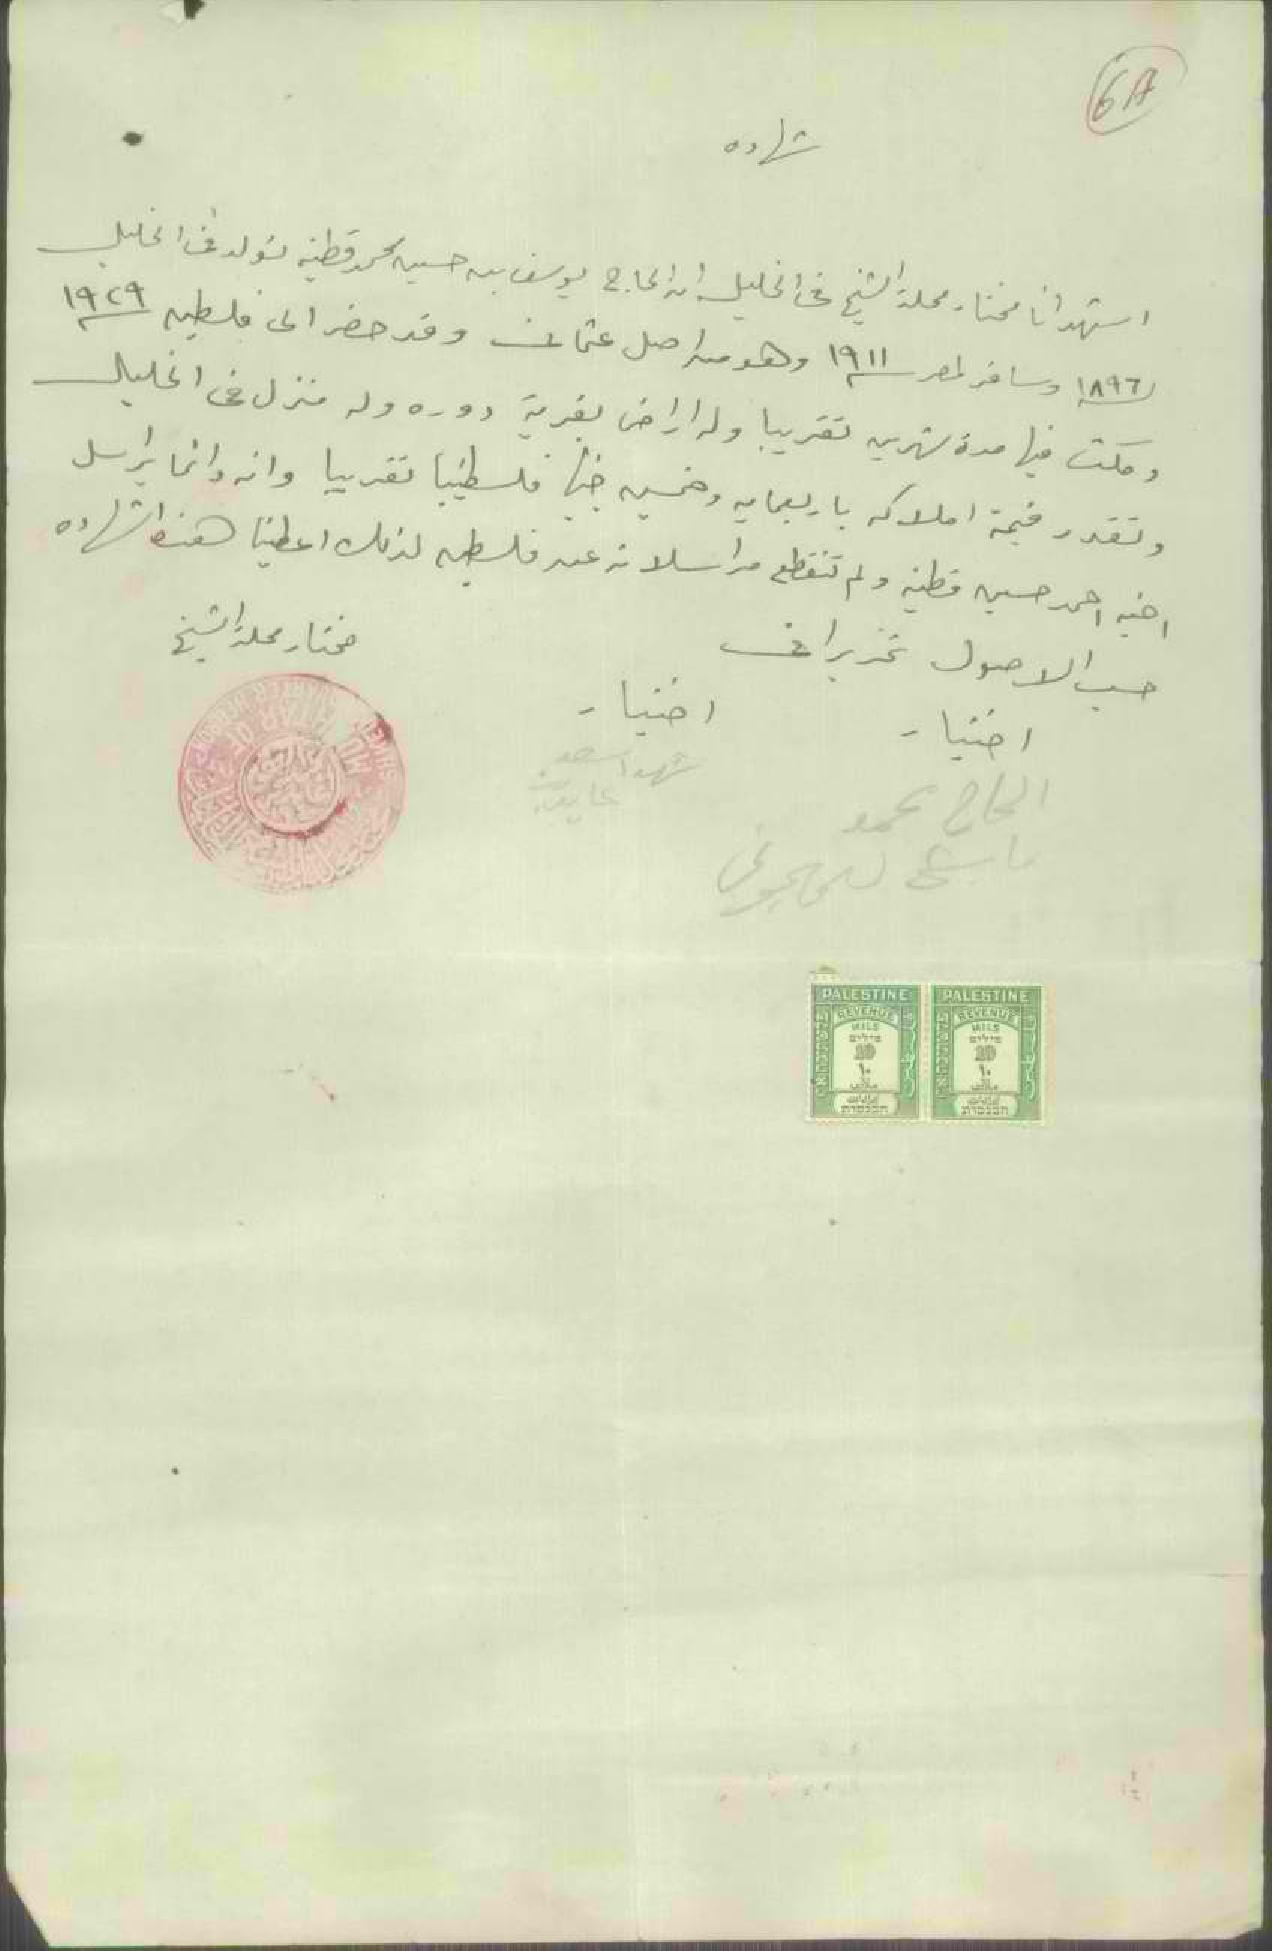 6A
شهاده
اشهد انا مختار محلة الشيخ في الخليل ان الحاج يوسف بن حسين محمد قطينه تولد في الخليل
١٨٩٦ وسافر لمصر ١٩١١ وهو من اصل عثماني وقد حضر الى فلسطين ١٩٢٩
ومكث فيها مدة شهرين تقريبا وله اراضي بقرية دوره وله منزل في الخليل
وتقدر قيمة املاكه باربعمايه وخمسين جنيها فلسطينيا تقريبا وانه دائما يراسل
اخيه احمد حسين قطينه ولم تنقطع مراسلاته عن فلسطين لذلك اعطينا هذه الشهاده
حسب الاصول تحريرا في
مختار محلة الشيخ
اختيار
اختيار
الحاج محمد
MUKHTAR OF
PALESTINE PALESTINE
REVENUE REVENUE
MILS MILS
מילים מילים
10 10
١٠ ١٠